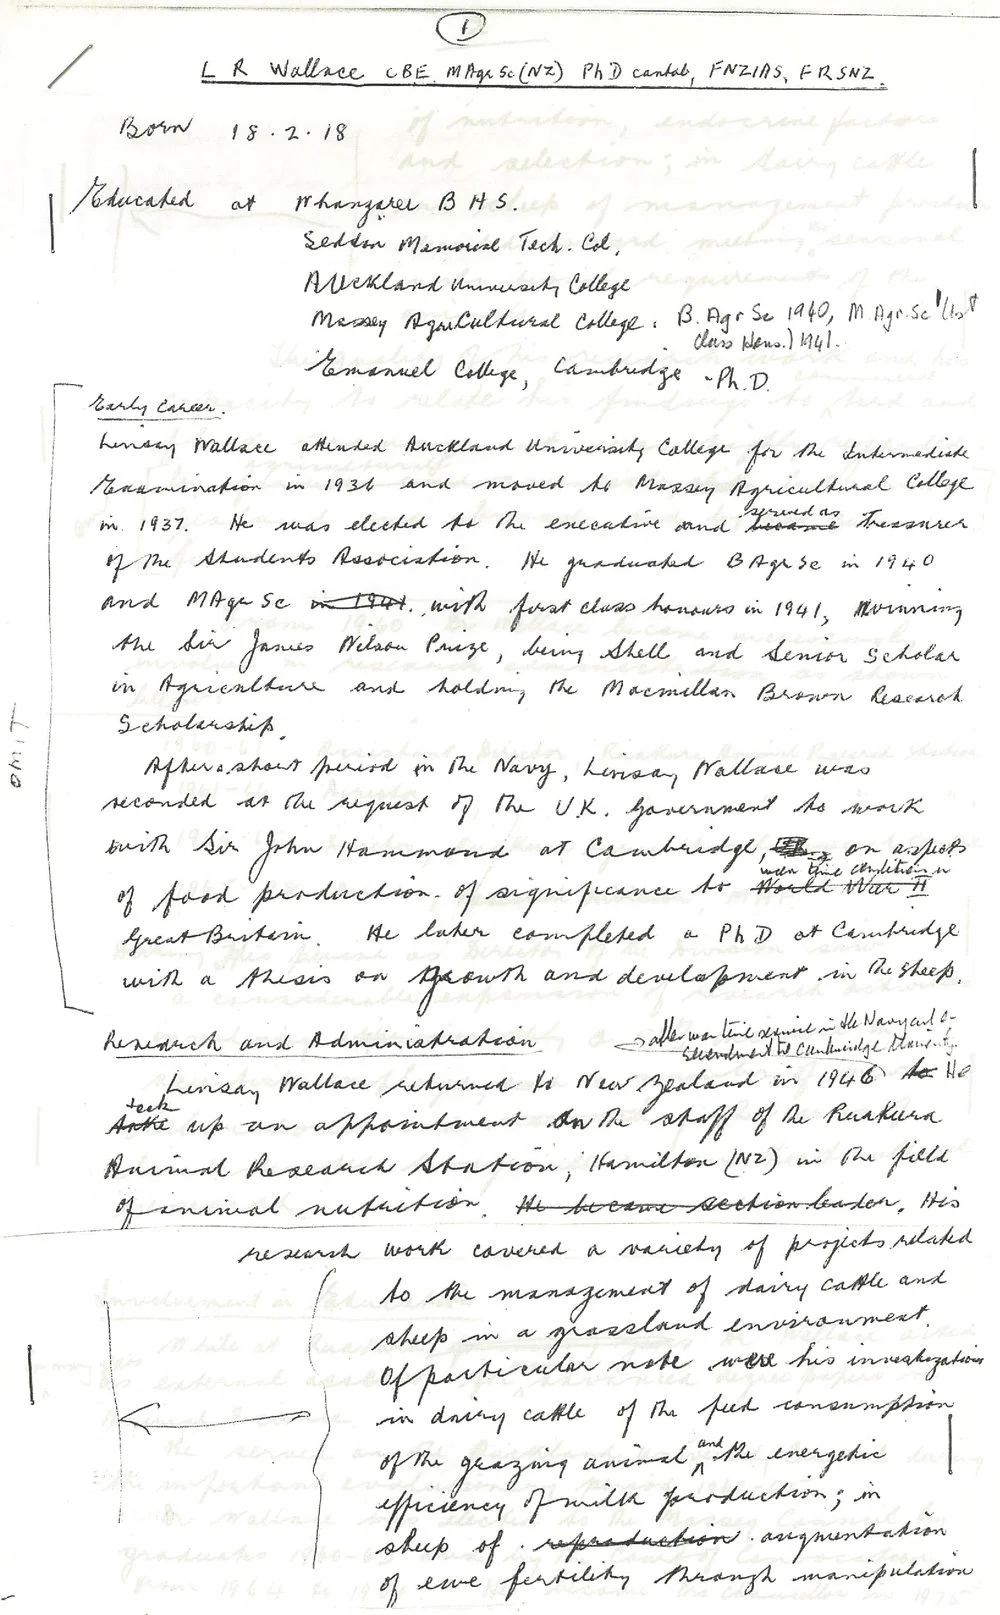 1
L R Wallace CBE MAgr Sc (NZ) PhD cantab, FNZIAS, FRSNZ.
Born 18.2.18
Educated at Whangarei B H S.
Seddon Memorial Tech. Col,
Auckland University College
Massey Agricultural College. B. Agr Sc 1940, M. Agr. Sc (1st
class Hons.) 1941.
Emanuel College, Cambridge - Ph. D.
Early Career.
Linsay Wallace attended Auckland University College for the Intermediate
Examination in 1936 and moved to Massey Agricultural College
in 1937. He was elected to the executive and became served as treasurer
of the Students Association. He graduated B Agr Sc in 1940
and MAgr Sc in 1941. with first class honours in 1941, winning
the Sir James Wilson Prize, being Shell and Senior Scholar
in Agriculture and holding the Macmillan Brown Research
Scholarship.
OMIT
After a short period in the Navy, Linsay Wallace was
seconded at the request of the U.K. Government to work
with Sir John Hammond at Cambridge, on aspects
of food production of significance to World War II war time conditions in
Great Britain. He later completed a PhD at Cambridge
with a thesis on Growth and development in the sheep.
Research and Administration
after war time service in the Navy and a
secondment to Cambridge University.
Linsay Wallace returned to New Zealand in 1946 to He
take took up an appointment on the staff of the Ruakura
Animal Research Station, Hamilton (NZ) in the field
of animal nutrition. He became section leader. His
research work covered a variety of projects related
to the management of dairy cattle and
sheep in a grassland environment.
Of particular note were his investigations
in dairy cattle of the feed consumption
of the grazing animal and the energetic
efficiency of milk production; in
sheep of reproduction augmentation
of ewe fertility through manipulation